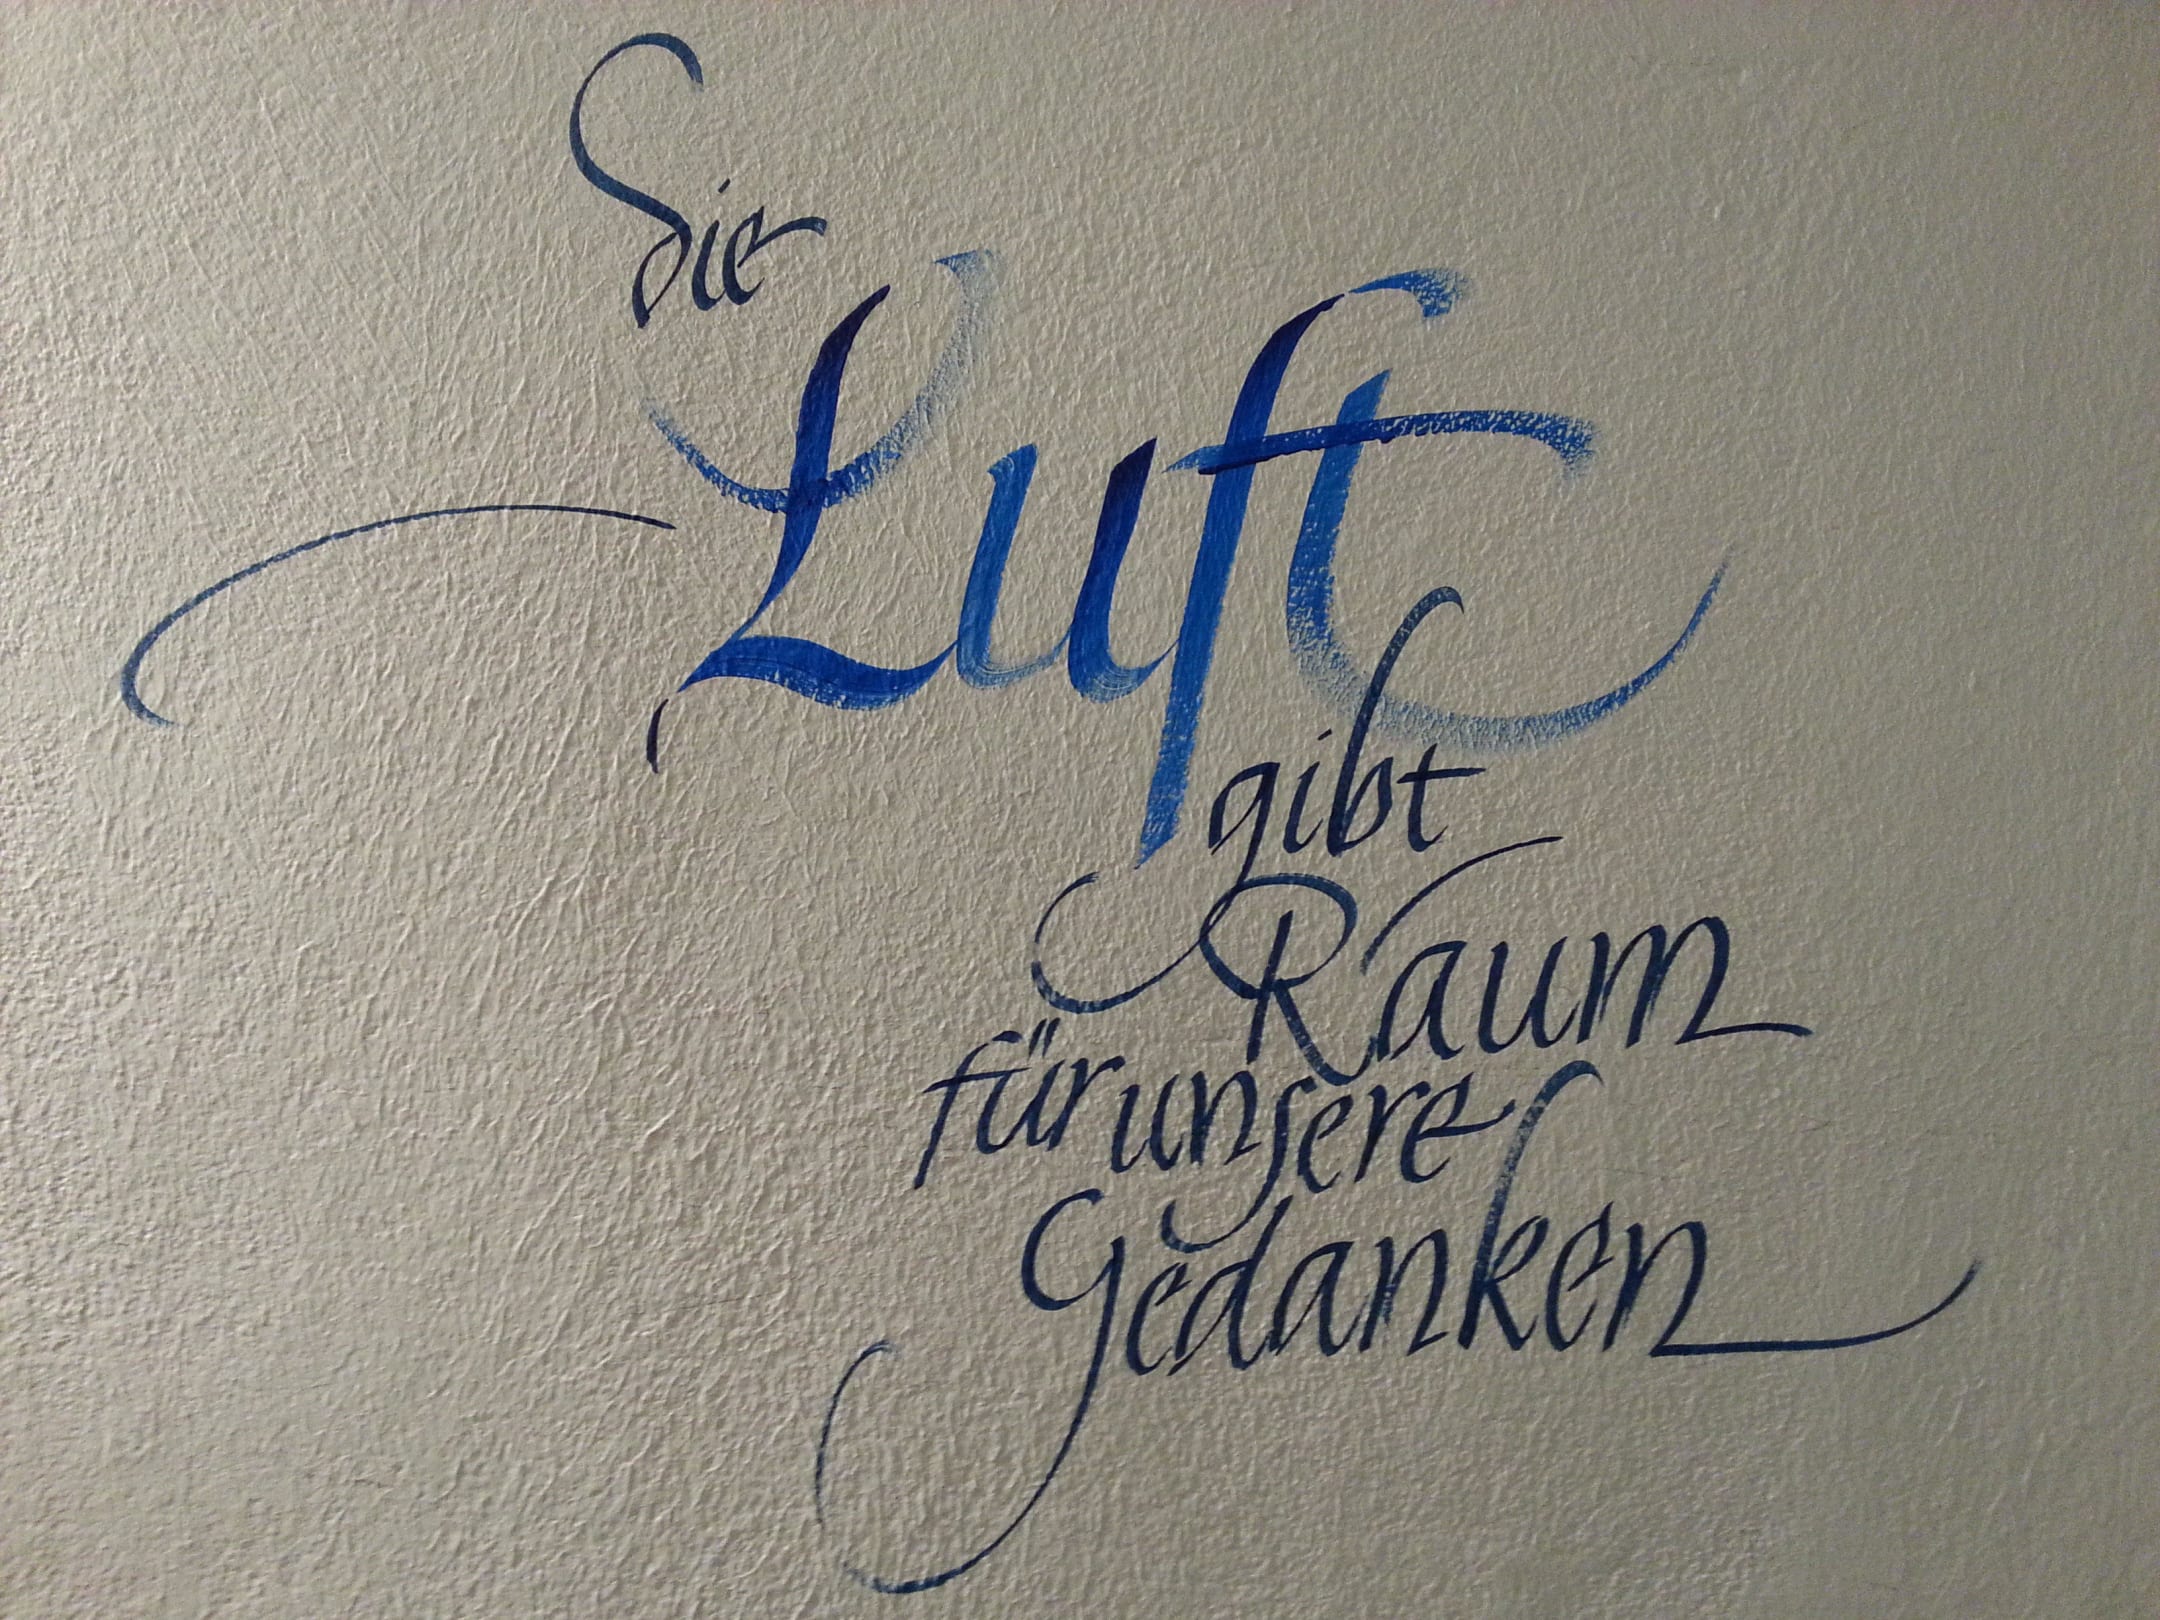 Die
Luft
gibt
Raum
für unsere
Gedanken